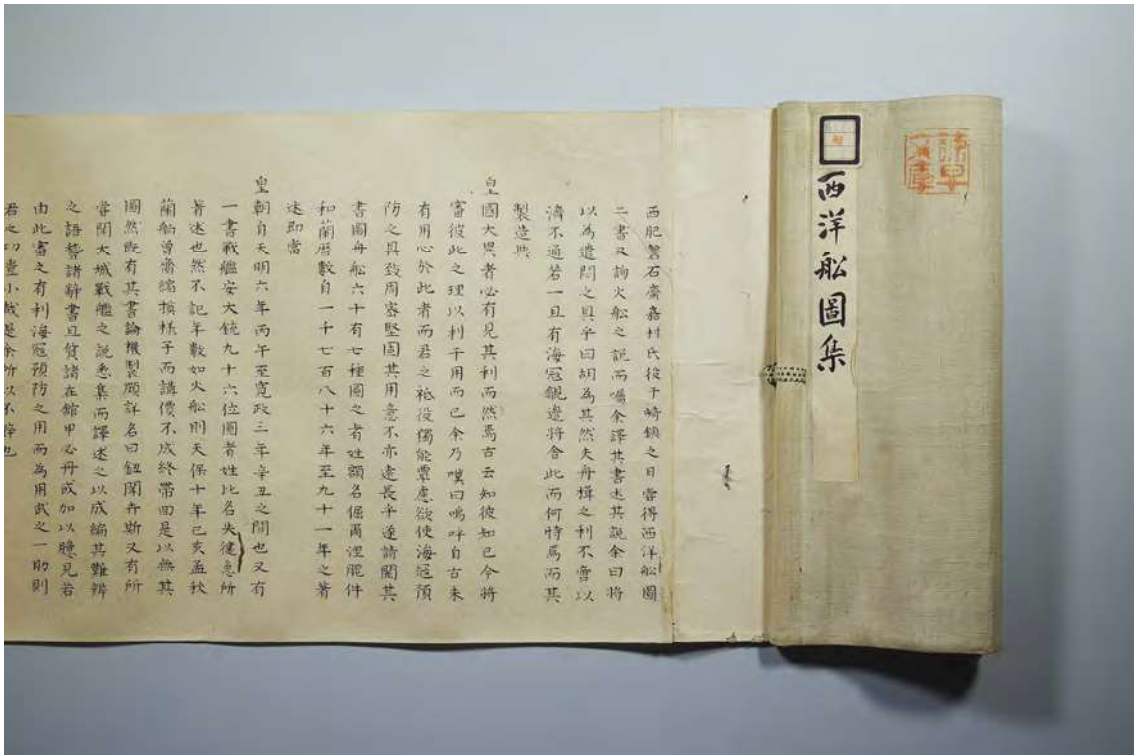 西洋舩圖集
諫早文庫
西肥磐石齋嘉村氏役于崎鎮之日嘗得西洋舩圖
二書又詢火舩之説而囑余譯其書述其説余曰將
以為遣之具乎曰胡為其然夫舟楫之利不啻以
濟不通若一旦有海冦覦邊將舍此而何恃焉而其
製造與
皇國大異者必有見其利而然焉古云知彼知己今將
審彼此之理以利于用而已余乃嘆曰嗚呼自古未
有用心於此者而君之祗役獨能覃慮欲使海冦預
防之具致周審堅固其用意不亦遠長乎遂請閲其
書圖舟舩六十有七種圖之者姓額名倔爾涅罷件
和蘭暦數自一千七百八十六年至九十一年之著
述即當
皇朝自天明六年丙午至寛政三年辛丑之間也又有
一書戰艦安大銃九十六位圖者姓比名失僂急所
著述也然不記年數如火舩則天保十年己亥孟秋
蘭舶曽齎縮摸樣子而講價不成終帶回是以無其
圖然既有其書論機製頗詳名曰鈕斯又有所
嘗聞大城戰艦之説悉集而譯述之以成編其難辨
之語諸辭書且質諸在館甲必丹或加以臆見若
由此審之有利海冦預防之用而為用武之一助則
君之功豈小哉是余所以不辭也